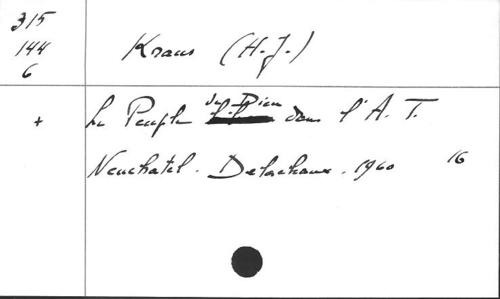 315
144
6
Kraus (H.J.)
+ Le Peuple de Dieu dans l'A.T.
Neuchatel. Delachaux. 1960 16